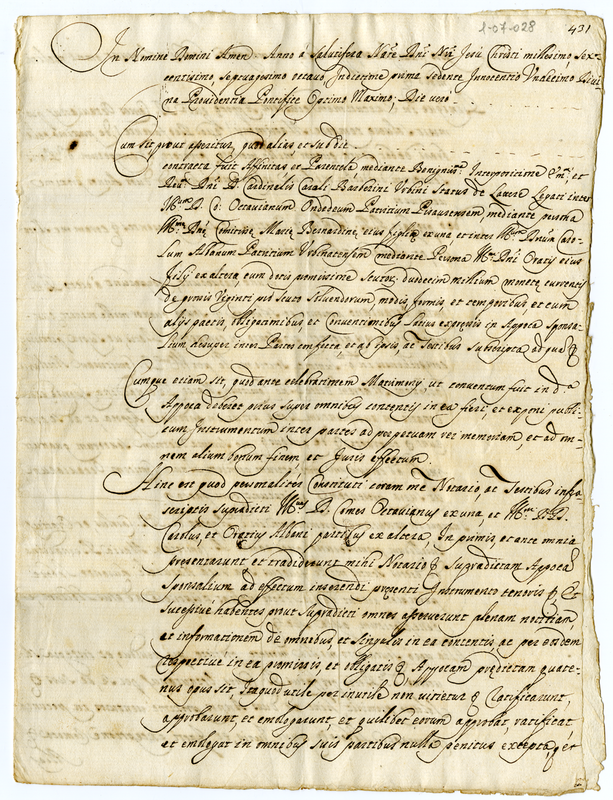 1-07-028
431
In Nomine Domini Amen. Anno à Salutifera Nat.e Dni Nri Jesu Christi millesimo, sex=
centesimo septuagesimo octavo, Indictione prima sedente Innocentio Undecimo Divi
na Providentia Pontifice Optimo Maximo; Die vero
Cum sit prout asseritur, quod alias et sub die
contracta fuit Affinitas et Parentela mediante Benignma Interpositione Emi, et
Revmi Dni D. Cardinalis Caroli Barberini Urbini Status de Latere Legati inter
Illmum D. Co: Octavianum Ondedeum Patritium Pisaurensem mediante persona
Illmae Dnae Comitissae Mariae Bernardinae eius filiae ex una, et inter Illmum Dnum Caro=
lum Albanum Patritium Urbinatensem mediante Persona Illmi Dni Oratij eius
filij ex altera cum dotis promissione Scutor. duodecim millium monetae currentis
de grossis Viginti pro Scuto Solvendorum modis, formis, et temporibus, et cum
alijs pactis, obligationibus, et Conventionibus latius expressis in Apoca Sponsa=
lium desuper inter Partes confecta, et ab ipsis, ac Testibus subscripta ad quam &
Cumque etiam sit, quod ante celebrationem Matrimonij, ut conventum fuit in da
Apoca deberet prius super omnibus contentis in ea fieri, et exponi publi=
cum Instrumentum inter partes ad perpetuam rei memoriam, et ad om=
nem alium bonum finem, et Juris effectum.
Hinc est quod personaliter Constituti coram me Notario, ac Testibus infra=
scriptis supradicti Illmus D. Comes Octavianus ex una, et Illmi D.D.
Carolus, et Oratius Albani partibus ex altera, In primis, et ante omnia
presentarunt et tradiderunt mihi Notario & supradictam Apocam
Sponsalium ad effectum inserendi presenti Instrumento tenoris & Et
successive habentes prout supradicti omnes asseverunt plenam notitiam,
et informationem de omnibus, et singulis in ea contentis, ac per eosdem
respective in ea promissis, et obligatis & Apocam predictam quate=
nus opus sit, itaquod utile per inutile non vitietur & Ratificarunt,
approbarunt, et emologarunt, et quilibet eorum approbat, ratificat,
et emologat in omnibus suis partibus nulla penitus excepta, & et